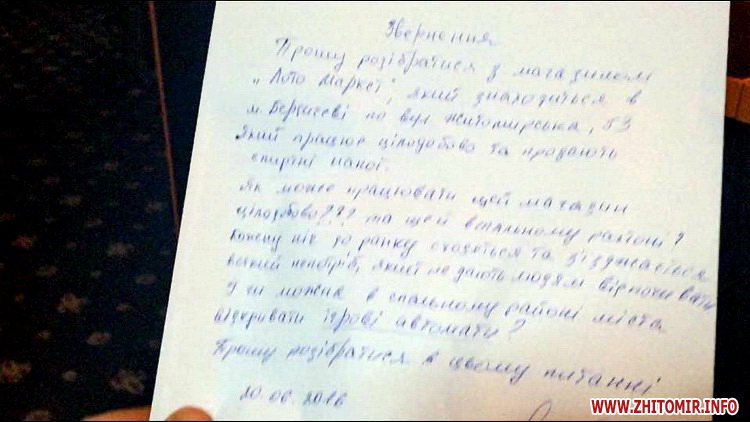 Звернення
Прошу розібратися з магазином
„Лото Маркет", який знаходиться в
м. Бердичеві по вул Житомирська, 53
Який працює цілодобово та продають
спиртні напої.
Як може працювати цей магазин
цілодобово??? та ще й в спальному районі?
Кожену ніч до ранку сходяться та з'їзджаються
всякий непотріб, який не дають людям відпочивати
У чи можна в спальному районі міста
відкривати ігрові автомати?
Прошу розібратися в цьому питанні
20.06.2016
WWW.ZHITOMIR.INFO